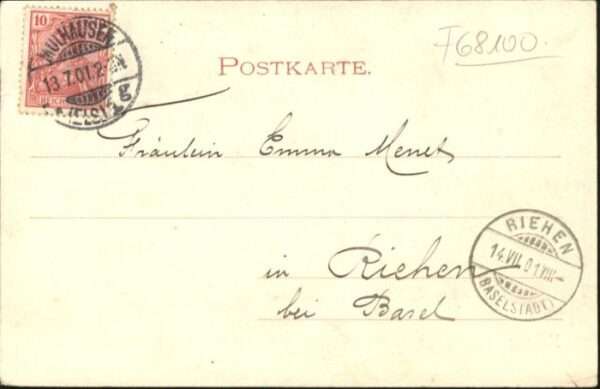 10
MÜLHAUSEN
13.7.01.2-
g
(ELS)
REICH
F68100.
POSTKARTE.
Fräulein Emma Menet
in Riehen
bei Basel
RIEHEN
14.VII.01.VIII-
(BASELSTADT)